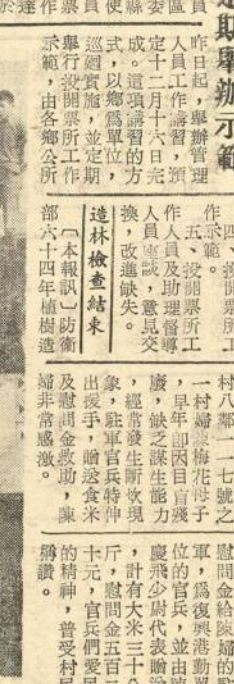 定期舉辦示範
昨日起，舉辦管理
人員工作講習，預
定十二月十六日完
成。這項講習的方
式，以鄉為單位，
巡迴實施，並定期
舉行投開票所工作
示範，由各鄉公所
四、投開票所工
作示範。
五、投開票所工
作人員及助理督導
人員座談，意見交
換，改進缺失。
造林檢查結束
〔本報訊〕防衛
部六十四年植樹造
村八鄰一一七號之
一村婦陳梅花母子
，早年即因目盲殘
廢，缺乏謀生能力
，經常發生斷炊現
象，駐軍官兵特伸
出援手，贈送食米
及慰問金救助，陳
婦非常感激。
慰問金給陳婦的駐
軍，為復興港勤單
位的官兵，並由
慶飛少尉代表贈
，計有大米三十
斤，慰問金五百
十元，官兵們愛民
的精神，普受村民
稱讚。